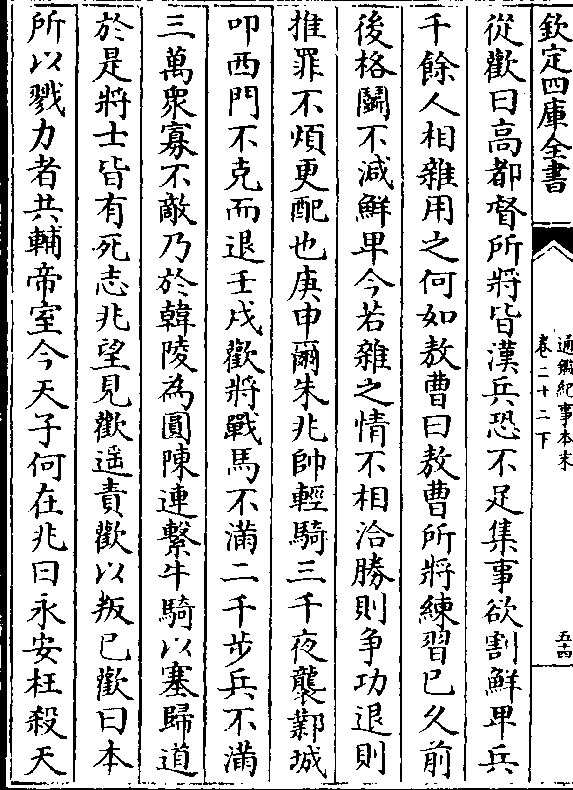 欽定四庫全書
通鑑紀事本末
卷二十二下
五十四
從歡曰高都督所將皆漢兵恐不足集事欲割鮮卑兵
千餘人相雜用之何如敖曹曰敖曹所將練習已久前
後格鬭不減鮮卑今若雜之情不相洽勝則爭功退則
推罪不煩更配也庚申爾朱兆帥輕騎三千夜襲鄴城
叩西門不克而退壬戌歡將戰馬不滿二千步兵不滿
三萬衆寡不敵乃於韓陵為圓陳連繫牛騎以塞歸道
於是將士皆有死志兆望見歡遥責歡以叛已歡曰本
所以戮力者共輔帝室今天子何在兆曰永安枉殺天